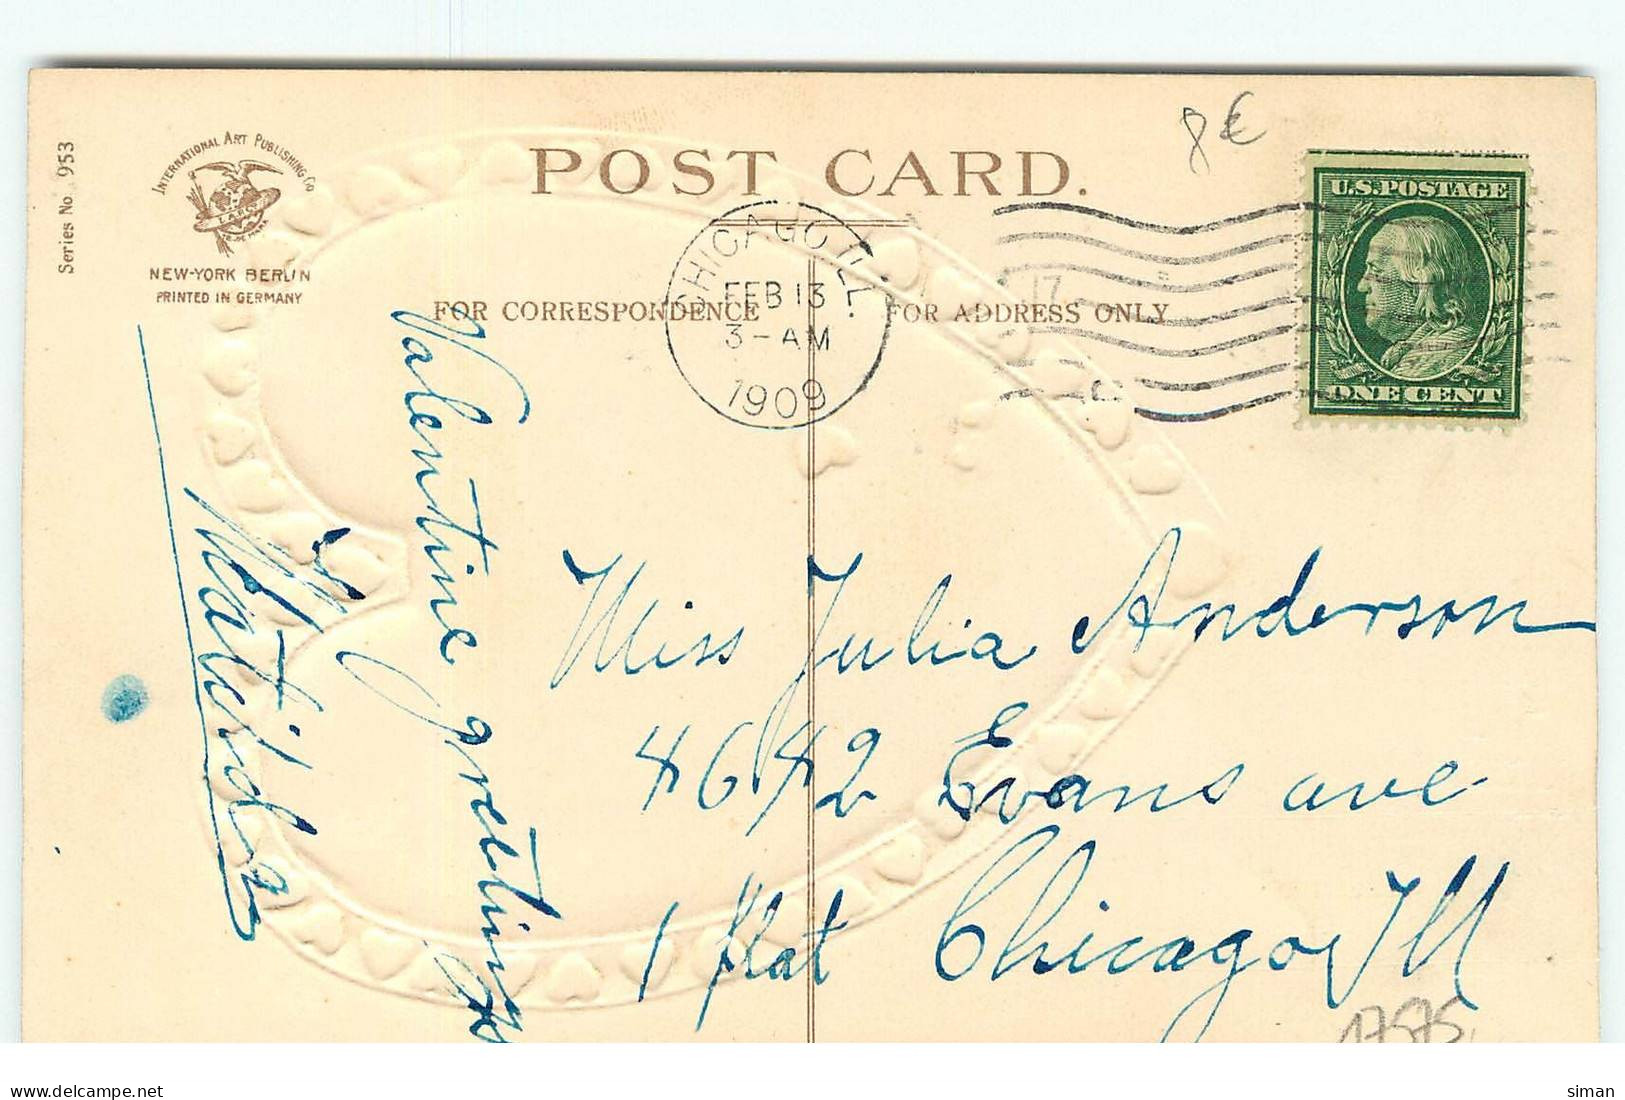 Series No. 953
INTERNATIONAL ART PUBLISHING CO.
NEW-YORK BERLIN
PRINTED IN GERMANY
POST CARD.
8€
U.S. POSTAGE
ONE CENT
CHICAGO ILL.
FEB 13
3-AM
1909
FOR CORRESPONDENCE
FOR ADDRESS ONLY
Valentine greetings
Miss Julia Anderson
4642 Evans ave
1 flat Chicago Ill
17575
delcampe.net
siman